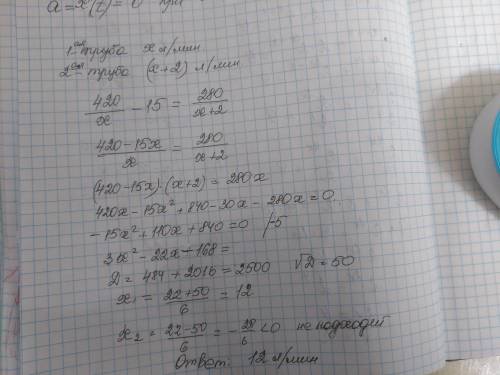 a = x''(t) = 0 при
1-ая труба x л/мин
2-ая труба (x+2) л/мин
420/x - 15 = 280/(x+2)
(420-15x)/x = 280/(x+2)
(420-15x)·(x+2) = 280x
420x - 15x² + 840 - 30x - 280x = 0
-15x² + 110x + 840 = 0 /-5
3x² - 22x - 168 =
D = 484 + 2016 = 2500 √D = 50
x₁ = (22+50)/6 = 12
x₂ = (22-50)/6 = -28/6 <0 не подходит
Ответ: 12 л/мин